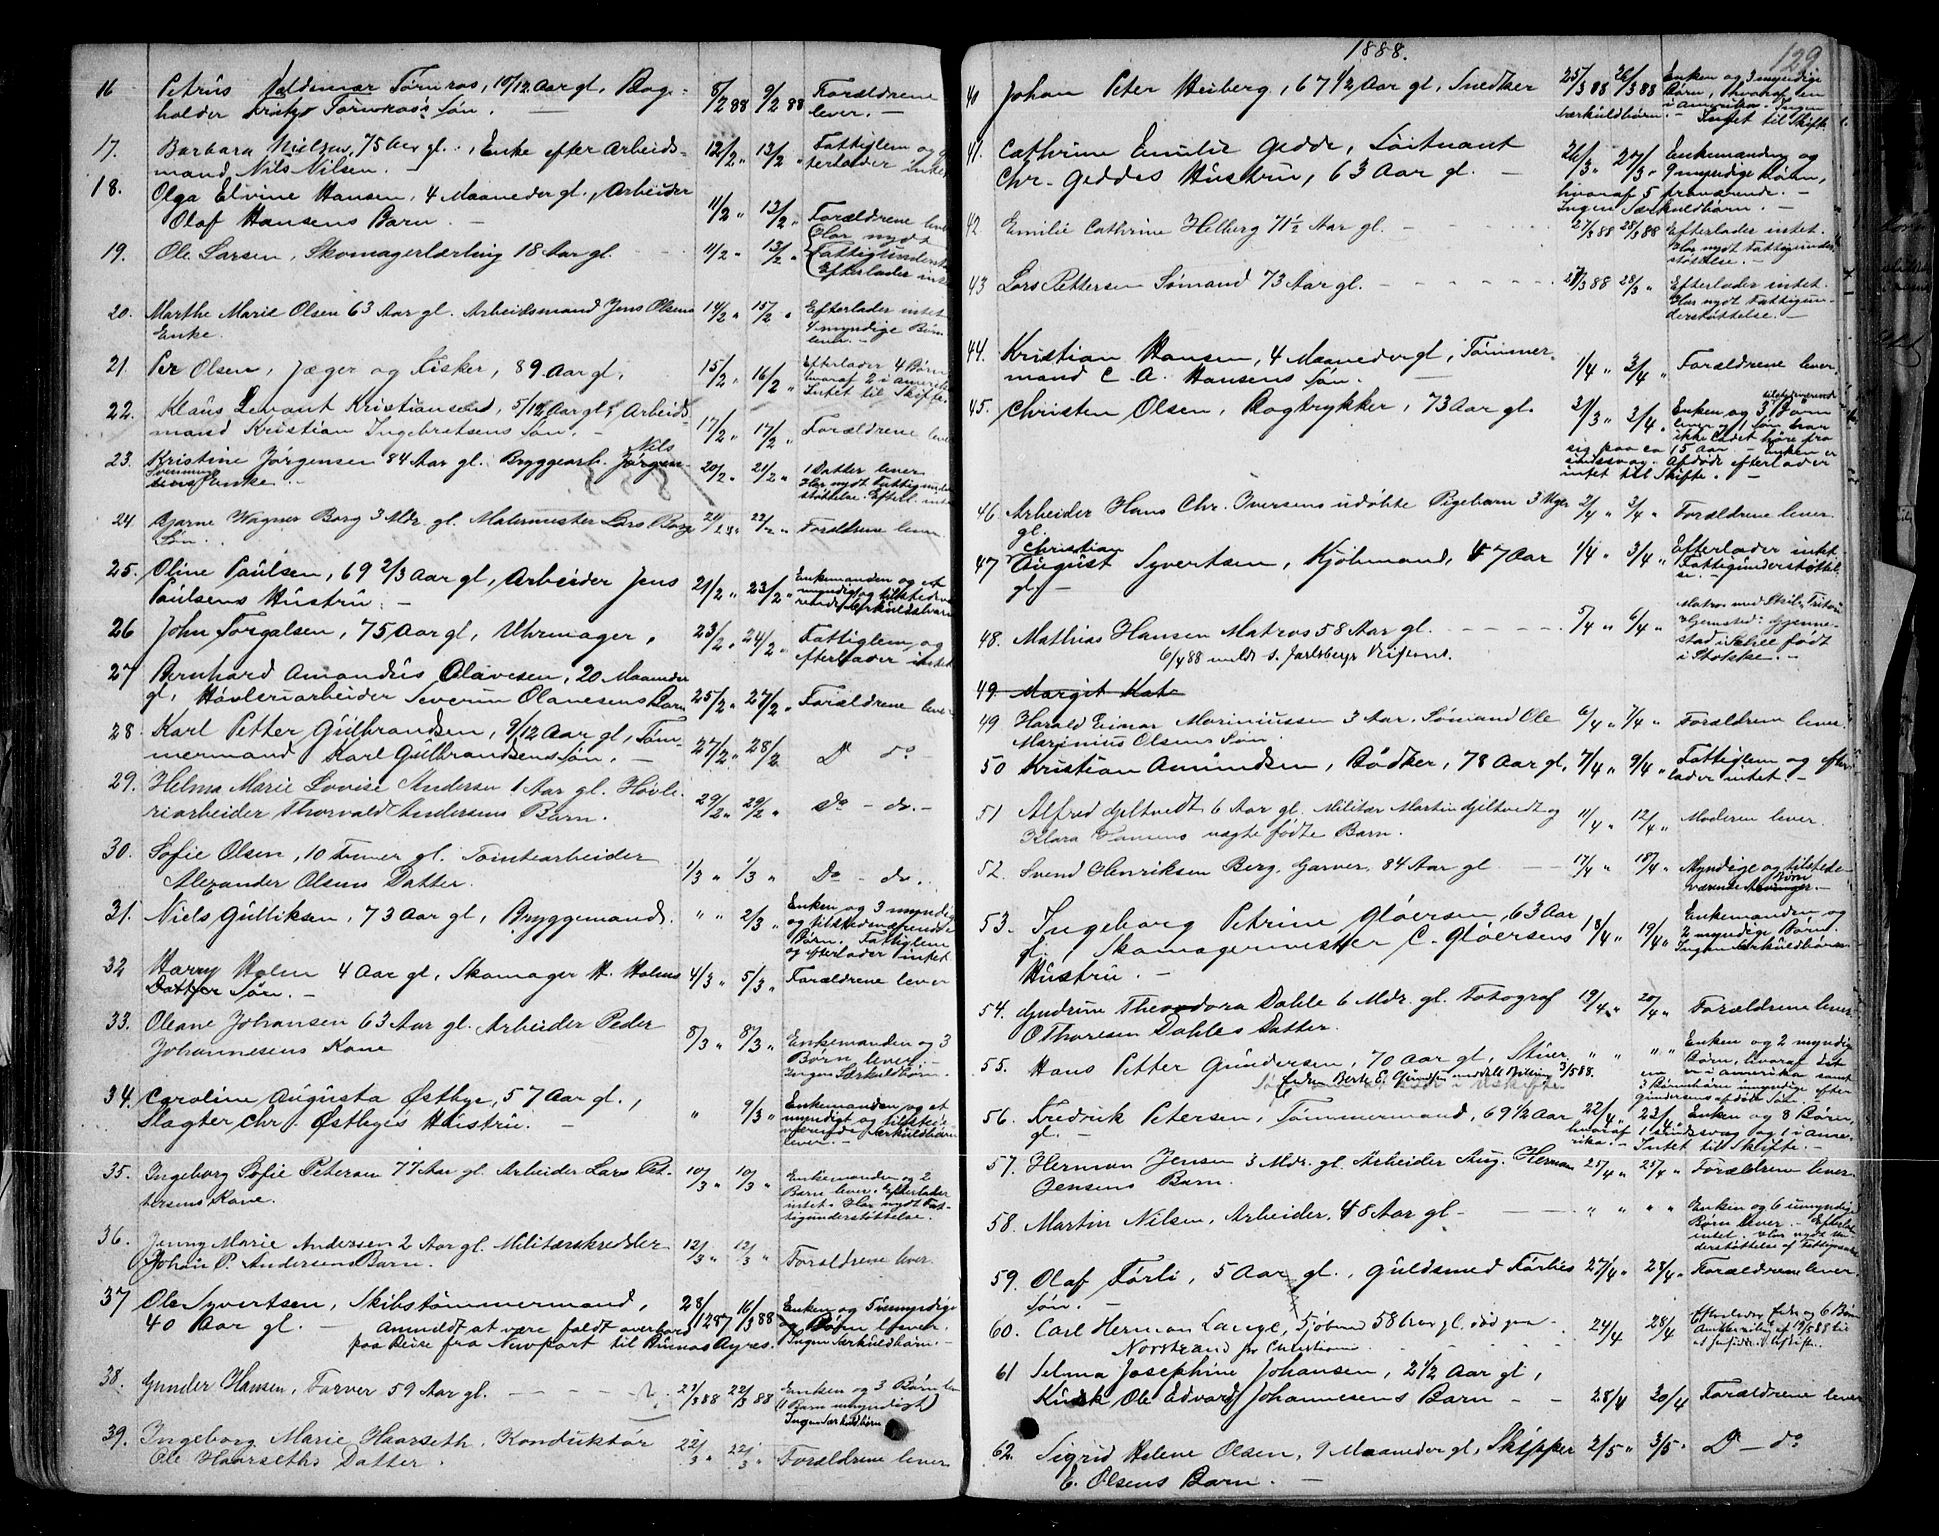 16 Petrus Valdemar Törnros, 10/12 Aar gl, Bog- 8/2 88 9/2 88 Forældrene
holder Fritz Törnros's Søn. — lever. —
17. Barbara Nielsen, 75 Aar gl., Enke efter Arbeids- 12/2 " 13/2 " Fattiglem og
mand Nils Nilsen. efterlader intet
18. Olga Elvine Hansen, 4 Maaneder gl., Arbeider 11/2 " 13/2 " Forældrene lever
Olaf Hansens Barn. —
19. Ole Larsen, Skomagerlærling 18 Aar gl. 11/2 " 13/2 " Har nydt
Fattigunderst.
Efterlader intet
20. Marthe Marie Olsen 63 Aar gl. Arbeidsmand Jens Olsens 14/2 " 15/2 " Efterlader intet
Enke. 4 myndige Børn
lever. —
21. Per Olsen, Jæger og Fisker, 89 Aar gl, 15/2 " 16/2 " Efterlader 4 Børn
hvoraf 2 i Amerika
Intet til Skifte.
22. Klaus Levant Kristiansend, 5/12 Aar gl, Arbeids 17/2 " 17/2 " Forældrene lever
mand Kristian Ingebretsens Søn. —
23. Kristine Jørgensen 84 Aar gl. Bryggearb. Nils Jørgen- 20/2 " 21/2 " 1 Datter lever
sens Enke. Har nydt Fattigunder
støttelse. Efterl. intet
24 Bjarne Wagner Borg 3 Mdr. gl. Malermester Lars Borgs 21/2 " 22/2 " Forældrene lever
Søn.
25. Oline Paulsen, 69 2/3 Aar gl, Arbeider Jens 21/2 " 23/2 " Enkemanden og et
Paulsens Hustru. — myndig og tilstedevæ
rende Særkuldsbarn
26 John Torgalsen, 75 Aar gl, Uhrmager, 23/2 " 24/2 " Fattiglem, og
efterlader intet
27 Bernhard Amandus Olavesen, 20 Maaneder
gl, Høvleriarbeider Severin Olavesens Barn 25/2 " 27/2 " Forældrene lever
28. Karl Petter Gulbrandsen, 9/12 Aar gl, Töm- 27/2 " 28/2 Do do —
mermand Karl Gulbrandsens Søn. —
29. Helma Marie Lovise Andersen 1 Aar gl. Høvle- 29/2 " 29/2 " Do - do. -
riarbeider Thorvald Andersens Barn.
30. Sofie Olsen, 10 Timer gl. Tomtearbeider 1/3 " 1/3 " Do - do.
Alexander Olsens Datter.
31. Niels Gulliksen, 73 Aar gl, Bryggemand. " " 2/3 " Enken og 3 myndige
og tilstedeværende
Børn. Fattiglem
og efterlader intet
32 Harry Holm 4 Aar gl, Skomager H. Holms 4/3 " 5/3 " Forældrene lever
Datter Søn. —
33. Oleane Johansen 63 Aar gl. Arbeider Peder 8/3 " 8/3 " Enkemanden og 3
Johannesens Kone Børn lever. —
Ingen Særkuldbørn.
34. Caroline Augusta Østbye, 57 Aar gl., " 9/3 " Enkemanden og et
Slagter Chr. Østbyes Hustru. — myndigt og tilstede-
værende Særkuldbarn
lever. —
35. Ingeborg Sofie Petersen 77 Aar gl Arbeider Lars Pet- 10/3 " 10/3 " Enkemanden og 2
tersens Kone. Børn lever. Efterlader
intet. Har nydt Fat-
tigunderstøttelse.
36. Jenny Marie Andersen 2 Aar gl. Militærskrædder 12/3 " 12/3 " Forældrene lever
Johan P. Andersens Barn.
37 Ole Syvertsen, Skibstømmermand, 28/12 87 16/3 88 Enken og umyndige
40 Aar gl. — Anmeldt at være faldt overbord og Børn lever.
paa Reise fra Newport til Buenos Ayres. Ingen Særkuldbørn. —
38. Gunder Hansen, Farver 59 Aar gl. — — — 21/3 88 22/3 88 Enken og 3 Børn lev
(1 Barn umyndigt)
Ingen Særkuldbørn
39. Ingeborg Marie Haarseth, Konduktør 22/3 " 22/3 " Forældrene lever
Ole Haarseths Datter.
1888. 129.
40 Johan Peter Heiberg, 67 1/2 Aar gl, Snedker 25/3 88 26/3 88 Enken og 3 myndige
Børn, hvoraf en
i Amerika. Ingen
Særkuldbørn. — Intet til Skifte.
41. Cathrine Emilie Gedde, Löitnant 26/3 " 27/3 " Enkemanden og
Chr. Geddes Hustru, 63 Aar gl. — 9 myndige Børn,
hvoraf 5 fraværende. —
Ingen Særkuldbørn. —
42 Emilie Cathrine Helberg 71 1/2 Aar gl. - - - 27/3 88 28/3 88 Efterlader intet.
Har nydt Fattigunder
støttelse. —
43 Lars Pettersen Sømand 73 Aar gl. - - - - 27/3 88 28/3 " Efterlader intet.
Har nydt Fattigun-
derstøttelse. —
44. Kristian Hansen, 4 Maaneder gl, Tømmer- 1/4 " 3/4 " Forældrene lever.
mand C. A. Hansens Søn. —
45. Christen Olsen, Bogtrykker, 73 Aar gl. 31/3 " 3/4 " Enken og 3 tilstedeværende Børn
lever og 1 Søn har
ikke ladet høre fra
sig paa ca 15 Aar. Enken er
sindssvag. Afdøde efterlader
intet til Skifte. —
46 Arbeider Hans Chr. Iversens udøbte Pigebarn 3 Uger 2/4 " 3/4 " Forældrene lever
gl.
47 Christian August Syvertsen, Kjøbmand, 47 Aar 1/4 " 3/4 " Efterlader intet
gl. — Fattigunderstøttel-
se. —
48. Mathias Hansen Matros 58 Aar gl. - - - - 5/4 " 6/4 " Matros med Skib
Hjemsted: Gjenne-
stad i Sthee født
i Stokke. —
6/4 88 meldt s. Jarlsbergs
49. Margit Kat
49 Harald Einar Marinussen 3 Aar. Sømand Ole 6/4 " 7/4 " Forældrene lever
Marinius Olsens Søn.
50 Kristian Amundsen, Bødker, 78 Aar gl, 7/4 " 9/4 " Fattiglem og efter
lader intet —
51 Alfred Gjeltvedt 6 Aar gl, Militær Martin Gjeltvedt og 11/4 " 12/4 " Moderen lever.
Klara Hansens uægte fødte Barn.
52. Svend Henriksen Berg, Garver, 84 Aar gl — — 17/4 " 18/4 " Myndige og tilstede-
værende Børn
53. Ingeborg Petrine Gløersen, 63 Aar 18/4 " 19/4 " Enkemanden og
gl. Skomagermester C. Gløersens 2 myndige Børn.
Hustru. — Ingen Særkuldbørn
54. Gudrun Theodora Dahle 6 Mdr. gl. Fotograf 19/4 " 20/4 " Forældrene lever
O Thoresen Dahles Datter.
55. Hans Petter Gundersen, 70 Aar gl, Stuer. " " " " Enken og 2 myndige
Børn, hvoraf det
en er i Amerika samt
3 Børnebørn umyndige efter
Gundersens afdøde Søn. —
Enken Berte E. Gundersen meddelt Bevilling 3/5 88.
56. Fredrik Petersen, Tømmermand, 69 1/2 Aar 22/4 " 23/4 " Enken og 8 Børn,
gl. — hvoraf 1 sindssvag og 1 i Ame-
rika. — Intet til Skifte. —
57. Herman Jensen 3 Mdr. gl. Arbeider Aug. Herman 25/4 " 25/4 " Forældrene lever
Jensens Barn.
58. Martin Nilsen, Arbeider, 48 Aar gl - - - - " " " " Enken og 6 umyndige
Børn lever. Efterl.
intet. Har nydt Un-
derstøttelse af Fattigvæs.
59. Olaf Førli, 5 Aar gl., Guldsmed Førlies 27/4 " 28/4 " Forældrene lever.
Søn. —
60. Carl Herman Lange, Sjømd 58 Aar gl. død paa 24/4 28/4 Efterlader Enke og 6 Børn
Nordstrand pr Christiania
61 Selma Josephine Johansen, 2 1/2 Aar gl,
Kusk Ole Edvard Johannesens Barn — - 28/4 30/4 Forældrene lever
62. Sigrid Helene Olsen, 9 Maaneder gl, Skipper 2/5 " 3/5 " Do — do
E. Olsens Barn. —